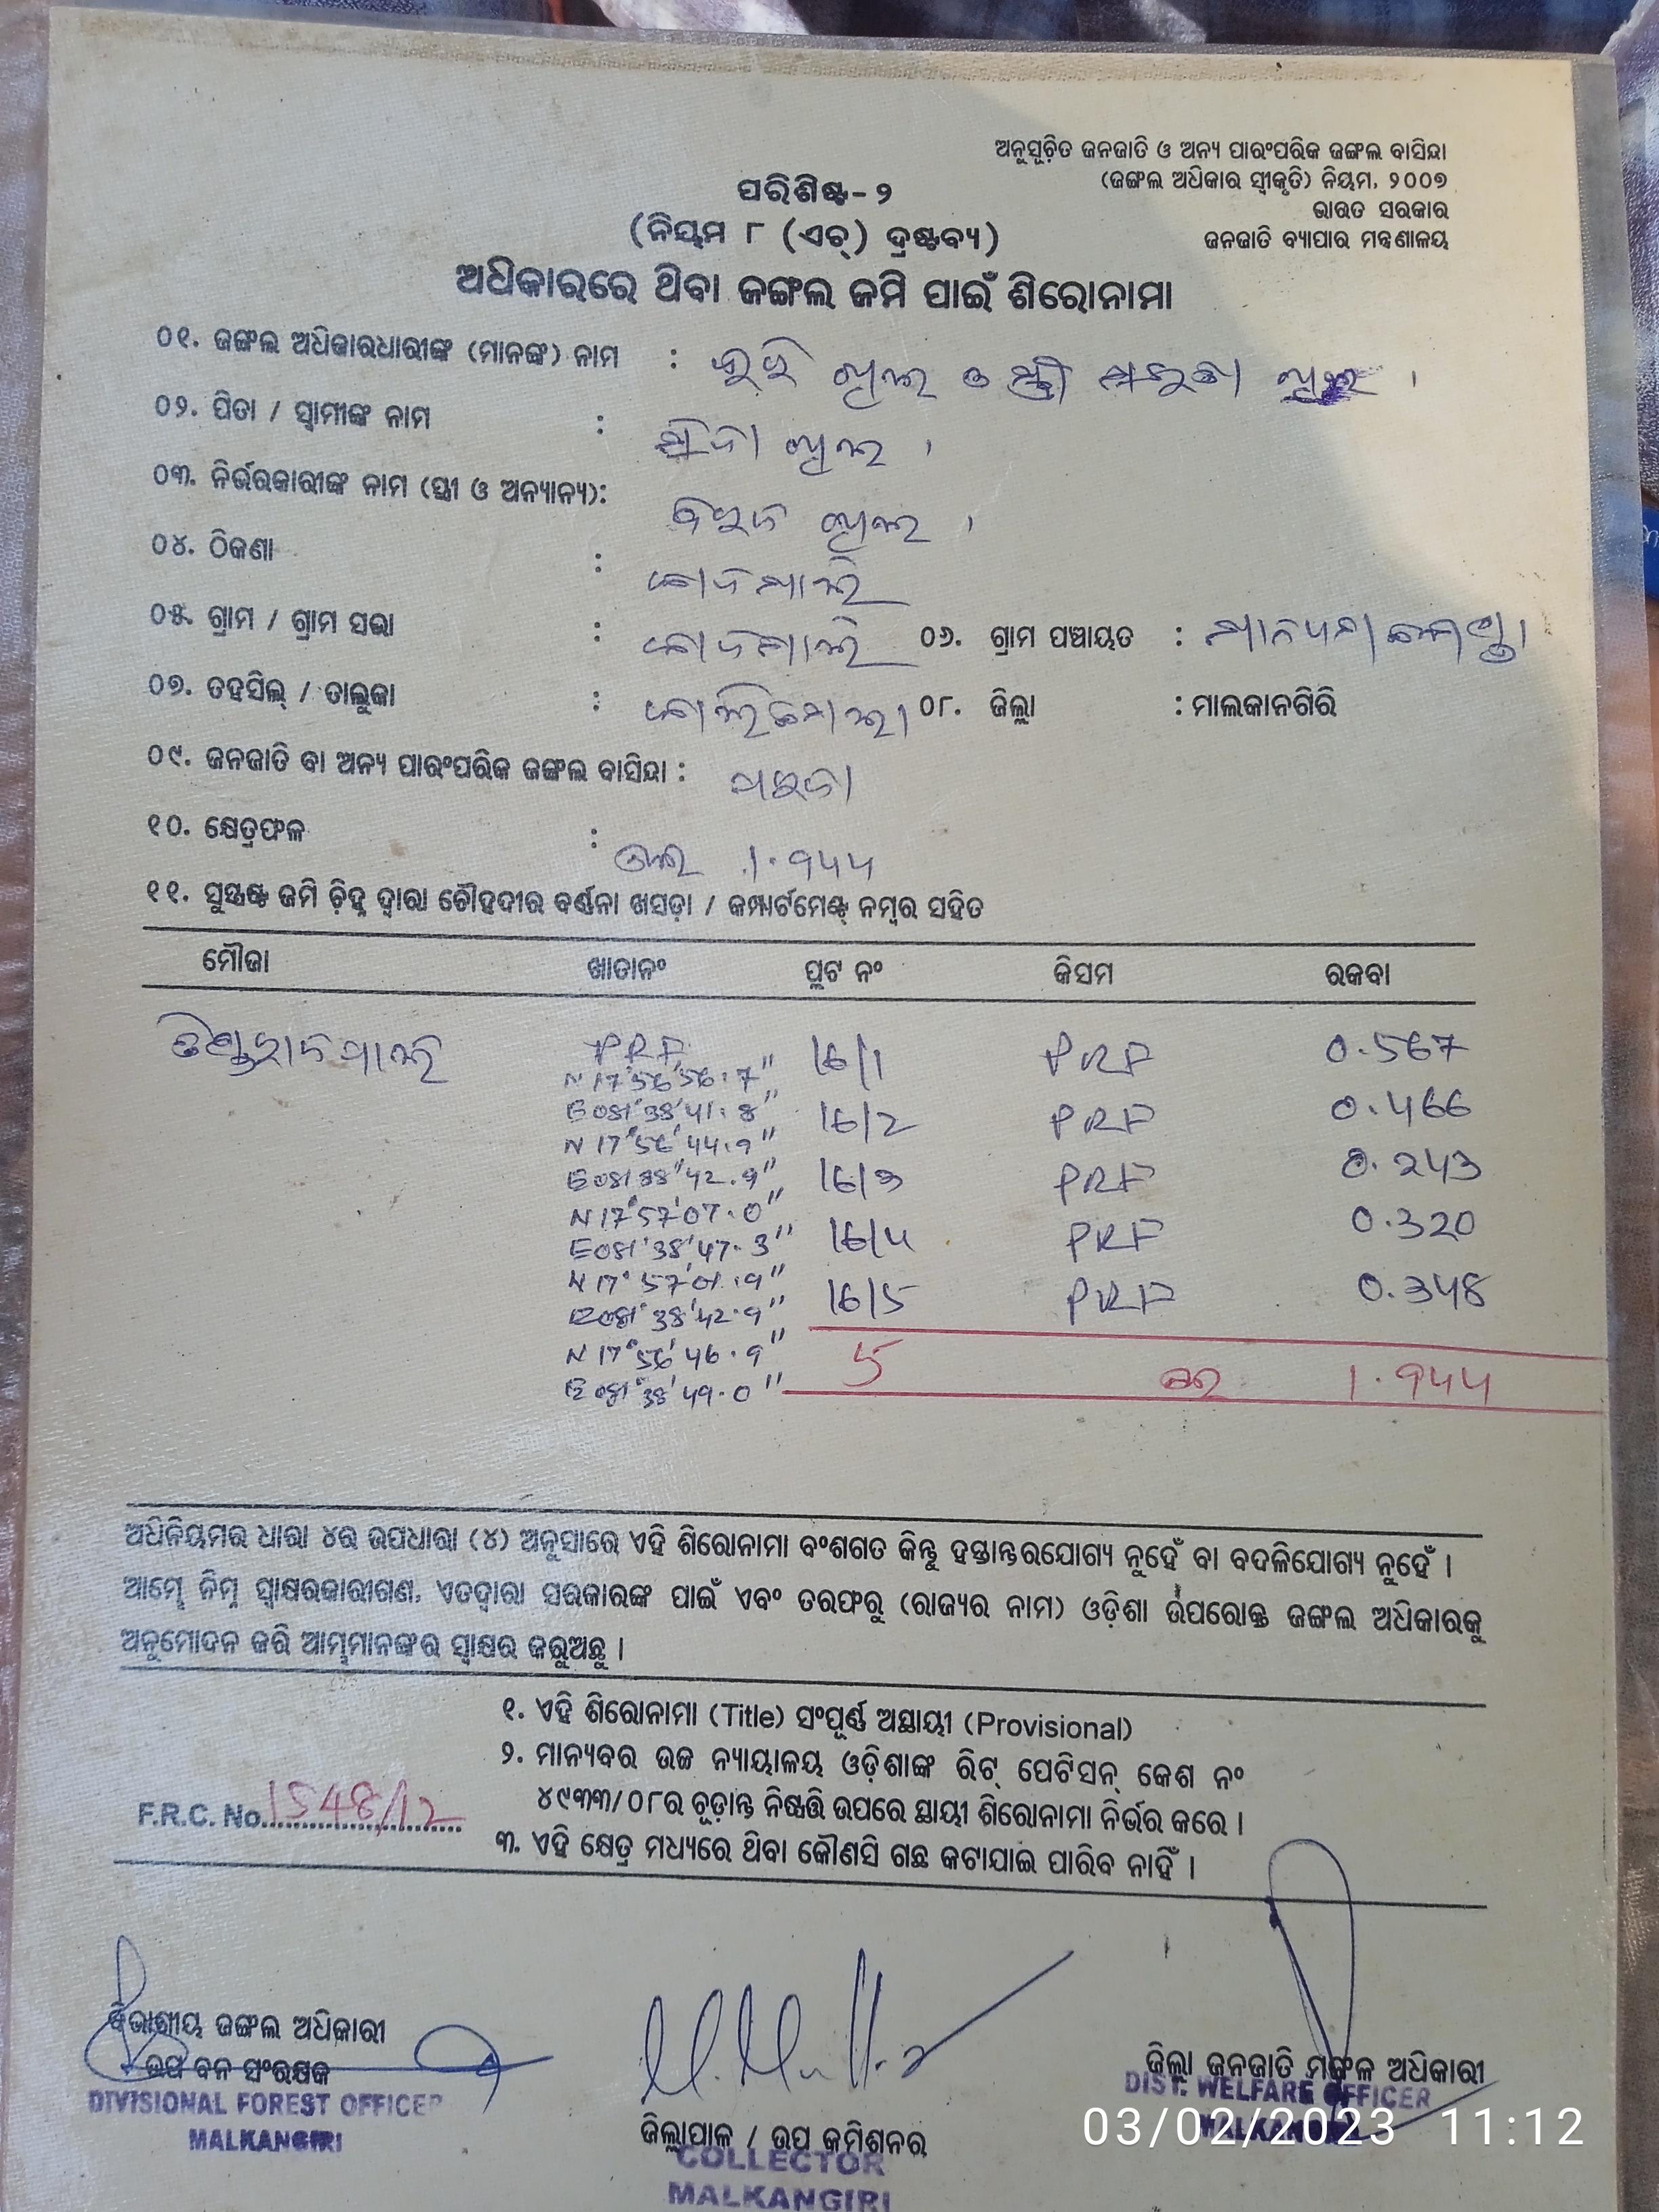 ଅନୁସୂଚିତ ଜନଜାତି ଓ ଅନ୍ୟ ପାରଂପରିକ ଜଙ୍ଗଲ ବାସିନ୍ଦା
(ଜଙ୍ଗଲ ଅଧିକାର ସ୍ୱୀକୃତି) ନିୟମ, ୨୦୦୭
ଭାରତ ସରକାର
ଜନଜାତି ବ୍ୟାପାର ମନ୍ତ୍ରଣାଳୟ
ପରିଶିଷ୍ଟ-୨
(ନିୟମ ୮ (ଏଚ୍) ଦ୍ରଷ୍ଟବ୍ୟ)
ଅଧିକାରରେ ଥିବା ଜଙ୍ଗଲ ଜମି ପାଇଁ ଶିରୋନାମା
୦୧. ଜଙ୍ଗଲ ଅଧିକାରଧାରୀଙ୍କ (ମାନଙ୍କ) ନାମ :
୦୨. ପିତା / ସ୍ୱାମୀଙ୍କ ନାମ :
୦୩. ନିର୍ଭରକାରୀଙ୍କ ନାମ (ସ୍ତ୍ରୀ ଓ ଅନ୍ୟାନ୍ୟ):
୦୪. ଠିକଣା :
୦୫. ଗ୍ରାମ / ଗ୍ରାମ ସଭା : ୦୬. ଗ୍ରାମ ପଞ୍ଚାୟତ :
୦୭. ତହସିଲ୍ / ତାଲୁକା : ୦୮. ଜିଲ୍ଲା : ମାଲକାନଗିରି
୦୯. ଜନଜାତି ବା ଅନ୍ୟ ପାରଂପରିକ ଜଙ୍ଗଲ ବାସିନ୍ଦା :
୧୦. କ୍ଷେତ୍ରଫଳ : 1.944
୧୧. ସୁସ୍ପଷ୍ଟ ଜମି ଚ଼ିହ୍ନ ଦ୍ୱାରା ଚୌହଦୀର ବର୍ଣ୍ଣନା ଖସଡ଼ା / କମ୍ପାର୍ଟମେଣ୍ଟ୍ ନମ୍ବର ସହିତ
ମୌଜା ଖାତାନଂ ପ୍ଲଟ ନଂ କିସମ ରକବା
PRF 16/1 PRF 0.567
N 17°56'56.7"
E 081°38'41.8" 16/2 PRF 0.466
N 17°56'44.9"
E 081°38'42.9" 16/3 PRF 0.243
N 17°57'07.0"
E 081°38'47.3" 16/4 PRF 0.320
N 17°57'01.9"
E 081°38'42.9" 16/5 PRF 0.348
N 17°56'46.9" 5 1.944
E 081°38'49.0"
ଅଧିନିୟମର ଧାରା ୪ର ଉପଧାରା (୪) ଅନୁସାରେ ଏହି ଶିରୋନାମା ବଂଶଗତ କିନ୍ତୁ ହସ୍ତାନ୍ତରଯୋଗ୍ୟ ନୁହେଁ ବା ବଦଳିଯୋଗ୍ୟ ନୁହେଁ ।
ଆମ୍ଭେ ନିମ୍ନ ସ୍ୱାକ୍ଷରକାରୀଗଣ, ଏତଦ୍ୱାରା ସରକାରଙ୍କ ପାଇଁ ଏବଂ ତରଫରୁ (ରାଜ୍ୟର ନାମ) ଓଡ଼ିଶା ଉପରୋକ୍ତ ଜଙ୍ଗଲ ଅଧିକାରକୁ
ଅନୁମୋଦନ କରି ଆମ୍ଭମାନଙ୍କର ସ୍ୱାକ୍ଷର କରୁଅଛୁ ।
୧. ଏହି ଶିରୋନାମା (Title) ସଂପୂର୍ଣ୍ଣ ଅସ୍ଥାୟୀ (Provisional)
୨. ମାନ୍ୟବର ଉଚ୍ଚ ନ୍ୟାୟାଳୟ ଓଡ଼ିଶାଙ୍କ ରିଟ୍ ପେଟିସନ୍ କେଶ ନଂ
୪୯୩୩/୦୮ର ଚୂଡ଼ାନ୍ତ ନିଷ୍ପତ୍ତି ଉପରେ ସ୍ଥାୟୀ ଶିରୋନାମା ନିର୍ଭର କରେ ।
F.R.C. No. 1548/12
୩. ଏହି କ୍ଷେତ୍ର ମଧ୍ୟରେ ଥିବା କୌଣସି ଗଛ କଟାଯାଇ ପାରିବ ନାହିଁ ।
ବିଭାଗୀୟ ଜଙ୍ଗଲ ଅଧିକାରୀ
ଉପ ବନ ସଂରକ୍ଷକ
DIVISIONAL FOREST OFFICER
MALKANGIRI
ଜିଲ୍ଲାପାଳ / ଉପ କମିଶନର
COLLECTOR
MALKANGIRI
ଜିଲ୍ଲା ଜନଜାତି ମଙ୍ଗଳ ଅଧିକାରୀ
DIST. WELFARE OFFICER
MALKANGIRI
03/02/2023 11:12